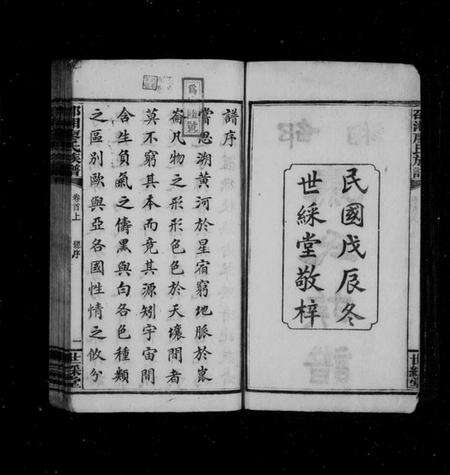 民國戊辰冬
世綵堂敬梓
譜序
嘗思溯黃河於星宿窮地脈於崑
崙凡物之形形色色於天壤間者
莫不窮其本而竟其源矧宇宙間
含生負氣之儔黑與白各色種類
之區別歐與亞各國性情之攸分
氏族譜
卷首上
譜序
一
世綵堂